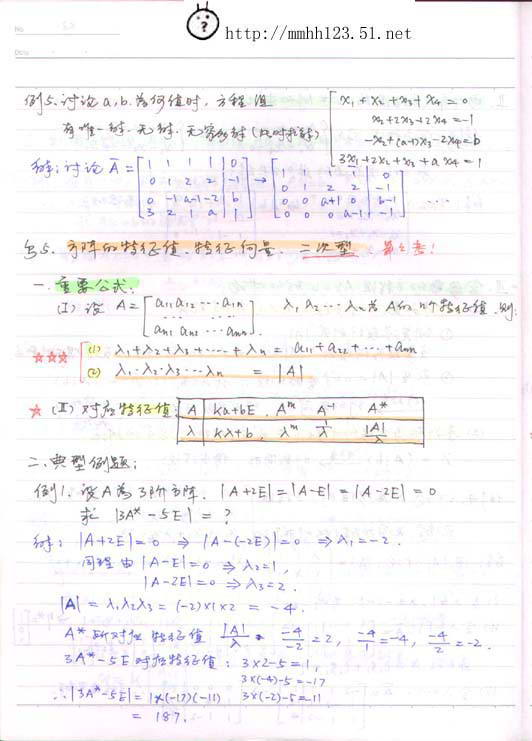 No
Date
http://mmhh123.51.net
例5.讨论a,b.为何值时,方程组
有唯一解.无解.无穷多解(此时求解)
x₁+x₂+x₃+x₄=0
x₂+2x₃+2x₄=-1
-x₂+(a-1)x₃-2x₄=b
3x₁+2x₂+x₃+ax₄=1
解:讨论 Ā=[1 1 1 1 | 0 → [1 1 1 1 | 0
0 1 2 2 | -1 0 1 2 2 | -1
0 -1 a-1 -2 | b 0 0 a+1 0 | b-1 ...
3 2 1 a | 1] 0 0 0 a-1 | -1]
5.方阵的特征值.特征向量.二次型 第2考!
一.重要公式.
(I) 设 A=[a₁₁ a₁₂ ··· a₁ₙ
··· ···
aₙ₁ aₙ₂ ··· aₙₙ]. λ₁,λ₂···λₙ为A的n个特征值.则:
☆☆☆ (1) λ₁+λ₂+λ₃+···+λₙ=a₁₁+a₂₂+···+aₙₙ
(2) λ₁·λ₂·λ₃···λₙ = |A|
☆ (II) 对应特征值: A | ka+bE, Aᵐ A⁻¹ A*
λ | kλ+b, λᵐ 1/λ |A|/λ
二.典型例题:
例1.设A为3阶方阵. |A+2E|=|A-E|=|A-2E|=0
求 |3A*-5E|=?
解: |A+2E|=0 ⇒ |A-(-2E)|=0 ⇒ λ₁=-2.
同理由 |A-E|=0 ⇒ λ₂=1,
|A-2E|=0 ⇒ λ₃=2.
|A|=λ₁λ₂λ₃=(-2)×1×2=-4.
A*所对应特征值 |A|/λ. -4/-2=2, -4/1=-4, -4/2=-2.
3A*-5E对应特征值: 3×2-5=1,
3×(-4)-5=-17
∴|3A*-5E|=1×(-17)(-11) 3×(-2)-5=-11
=187.